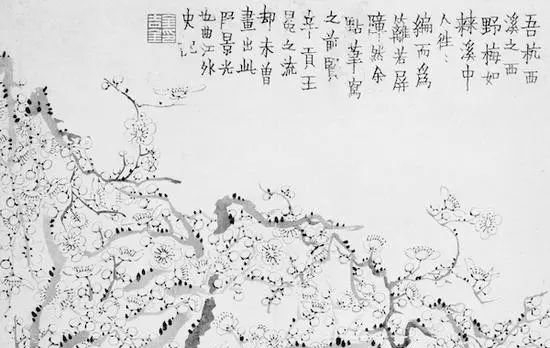 吾杭西
溪之西
野梅如
棘溪中
人往〻
編而為
籬若屏
障然余
點筆寫
之前賢
辛貢王
冕之流
却未曾
畫出此
段景光
也曲江外
史記